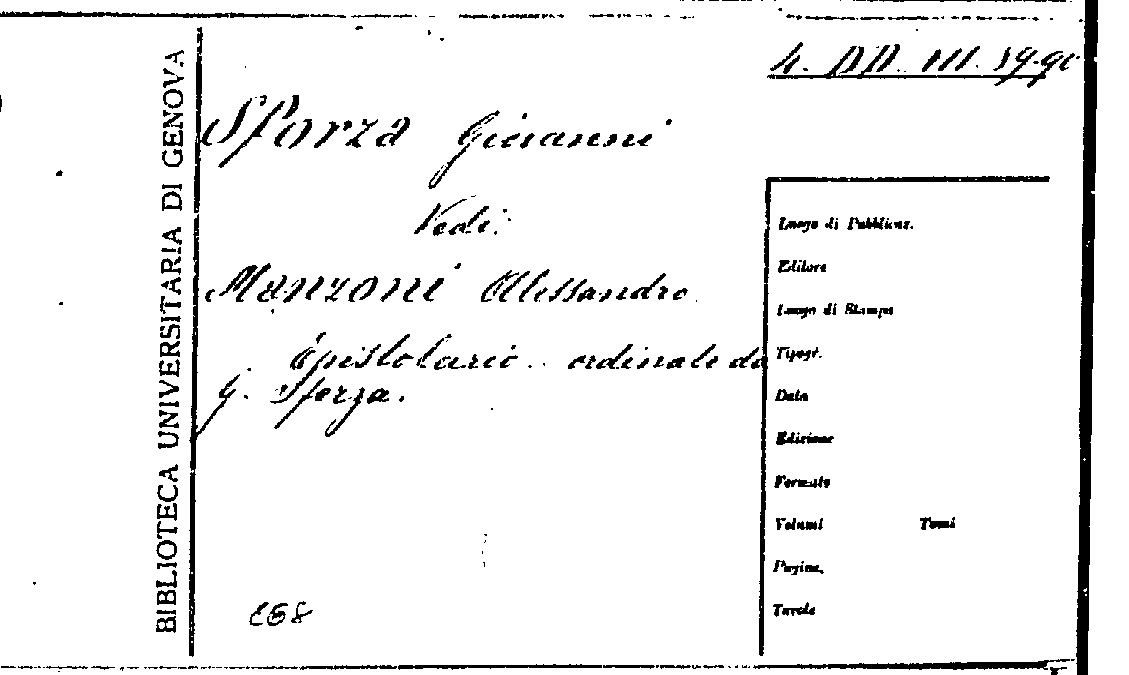 BIBLIOTECA UNIVERSITARIA DI GENOVA
4. DD. III. 39-90
Sforza Giovanni
Vedi:
Manzoni Alessandro
Epistolario .. ordinato da
G. Sforza.
Luogo di Pubblicaz.
Editore
Luogo di Stampa
Tipogr.
Data
Edizione
Formato
Volumi Tomi
Pagine
Tavole